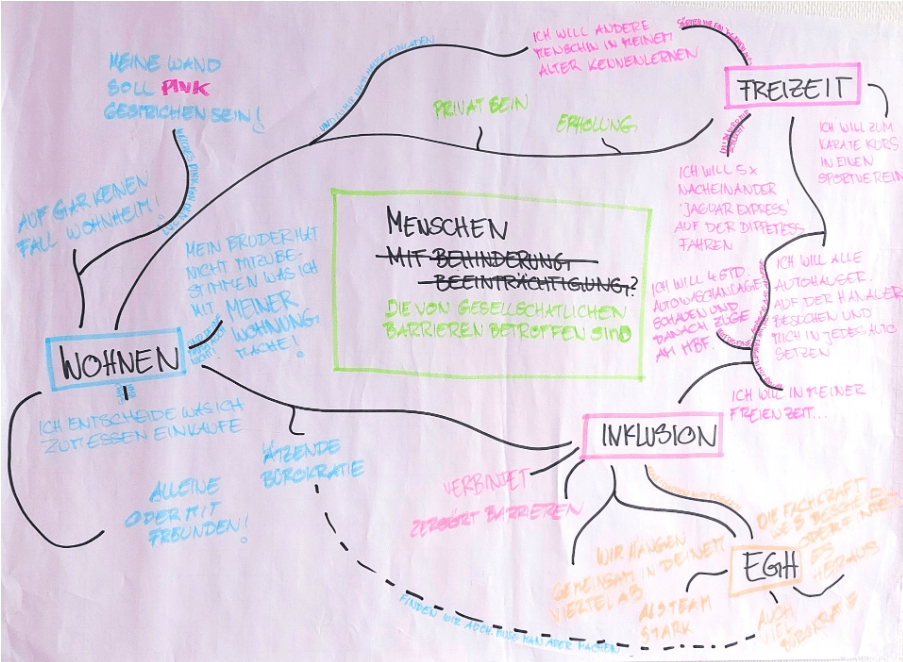 MEINE WAND
SOLL PINK
GESTRICHEN SEIN!
AUF GAR KEINEN
FALL WOHNHEIM!
MEIN BRUDER HAT
NICHT MITZUBE-
STIMMEN WAS ICH
MIT MEINER
WOHNUNG
MACHE!
WOHNEN
ICH ENTSCHEIDE WAS ICH
ZUM ESSEN EINKAUFE
ALLEINE
ODER MIT
FREUNDEN!
ÄTZENDE
BÜROKRATIE
PRIVAT SEIN
ERHOLUNG
ICH WILL ANDERE
MENSCHEN IN MEINEM
ALTER KENNENLERNEN
FREIZEIT
ICH WILL ZUM
KARATE KURS
IN EINEN
SPORTVEREIN
ICH WILL 5X
NACHEINANDER
'JAGUAR EXPRESS'
AUF DER DIPPEMESS
FAHREN
MENSCHEN
MIT BEHINDERUNG
BEEINTRÄCHTIGUNG?
DIE VON GESELLSCHAFTLICHEN
BARRIEREN BETROFFEN SIND
ICH WILL 4 STD.
AUTOWASCHANLAGE
SCHAUEN UND
DANACH ZÜGE
AM HBF.
ICH WILL ALLE
AUTOHÄUSER
AUF DER HANAUER
BESUCHEN UND
MICH IN JEDES AUTO
SETZEN
ICH WILL IN MEINER
FREIEN ZEIT...
INKLUSION
VERBINDET
ZERSTÖRT BARRIEREN
WIR HÄNGEN
GEMEINSAM IN DEINEM
VIERTEL AB
EGH
DIE FACHKRAFT
WEIß BESCHEID
ODER FINDET
ES
HERAUS
ALS TEAM
STARK
AUCH
VIEL
BÜROKRATIE
FINDEN WIR AUCH, MUSS MAN ABER MACHEN